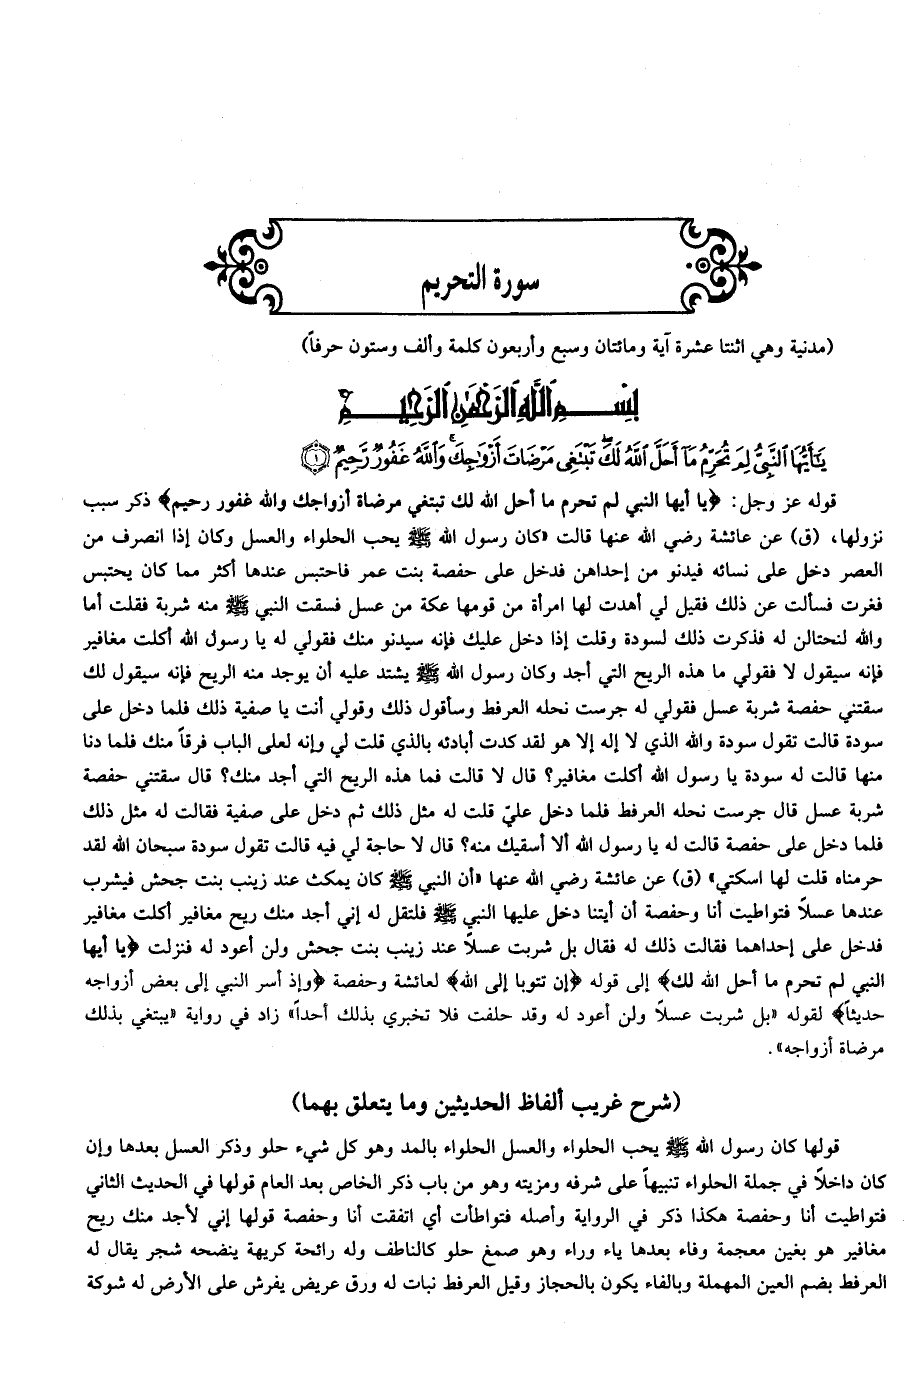 سورة التحريم
(مدنية وهي اثنتا عشرة آية ومائتان وسبع وأربعون كلمة وألف وستون حرفاً)
بِسْمِ اللَّهِ الرَّحْمَٰنِ الرَّحِيمِ
يَٰٓأَيُّهَا ٱلنَّبِىُّ لِمَ تُحَرِّمُ مَآ أَحَلَّ ٱللَّهُ لَكَ ۖ تَبْتَغِى مَرْضَاتَ أَزْوَٰجِكَ ۚ وَٱللَّهُ غَفُورٌ رَّحِيمٌ ١
قوله عز وجل: ﴿يا أيها النبي لم تحرم ما أحل الله لك تبتغي مرضاة أزواجك والله غفور رحيم﴾ ذكر سبب
نزولها، (ق) عن عائشة رضي الله عنها قالت «كان رسول الله ﷺ يحب الحلواء والعسل وكان إذا انصرف من
العصر دخل على نسائه فيدنو من إحداهن فدخل على حفصة بنت عمر فاحتبس عندها أكثر مما كان يحتبس
فغرت فسألت عن ذلك فقيل لي أهدت لها امرأة من قومها عكة من عسل فسقت النبي ﷺ منه شربة فقلت أما
والله لنحتالن له فذكرت ذلك لسودة وقلت إذا دخل عليك فإنه سيدنو منك فقولي له يا رسول الله أكلت مغافير
فإنه سيقول لا فقولي ما هذه الريح التي أجد وكان رسول الله ﷺ يشتد عليه أن يوجد منه الريح فإنه سيقول لك
سقتني حفصة شربة عسل فقولي له جرست نحله العرفط وسأقول ذلك وقولي أنت يا صفية ذلك فلما دخل على
سودة قالت تقول سودة والله الذي لا إله إلا هو لقد كدت أبادئه بالذي قلت لي وإنه لعلى الباب فرقاً منك فلما دنا
منها قالت له سودة يا رسول الله أكلت مغافير؟ قال لا قالت فما هذه الريح التي أجد منك؟ قال سقتني حفصة
شربة عسل قال جرست نحله العرفط فلما دخل عليّ قلت له مثل ذلك ثم دخل على صفية فقالت له مثل ذلك
فلما دخل على حفصة قالت له يا رسول الله ألا أسقيك منه؟ قال لا حاجة لي فيه قالت تقول سودة سبحان الله لقد
حرمناه قلت لها اسكتي» (ق) عن عائشة رضي الله عنها «أن النبي ﷺ كان يمكث عند زينب بنت جحش فيشرب
عندها عسلاً فتواطيت أنا وحفصة أن أيتنا دخل عليها النبي ﷺ فلتقل له إني أجد منك ريح مغافير أكلت مغافير
فدخل على إحداهما فقالت ذلك له فقال بل شربت عسلاً عند زينب بنت جحش ولن أعود له فنزلت ﴿يا أيها
النبي لم تحرم ما أحل الله لك﴾ إلى قوله ﴿إن تتوبا إلى الله﴾ لعائشة وحفصة ﴿وإذ أسر النبي إلى بعض أزواجه
حديثاً﴾ لقوله «بل شربت عسلاً ولن أعود له وقد حلفت فلا تخبري بذلك أحداً» زاد في رواية «يبتغي بذلك
مرضاة أزواجه».
(شرح غريب ألفاظ الحديثين وما يتعلق بهما)
قولها كان رسول الله ﷺ يحب الحلواء والعسل الحلواء بالمد وهو كل شيء حلو وذكر العسل بعدها وإن
كان داخلاً في جملة الحلواء تنبيهاً على شرفه ومزيته وهو من باب ذكر الخاص بعد العام قولها في الحديث الثاني
فتواطيت أنا وحفصة هكذا ذكر في الرواية وأصله فتواطأت أي اتفقت أنا وحفصة قولها إني لأجد منك ريح
مغافير هو بغين معجمة وفاء بعدها ياء وراء وهو صمغ حلو كالناطف وله رائحة كريهة ينضحه شجر يقال له
العرفط بضم العين المهملة وبالفاء يكون بالحجاز وقيل العرفط نبات له ورق عريض يفرش على الأرض له شوكة